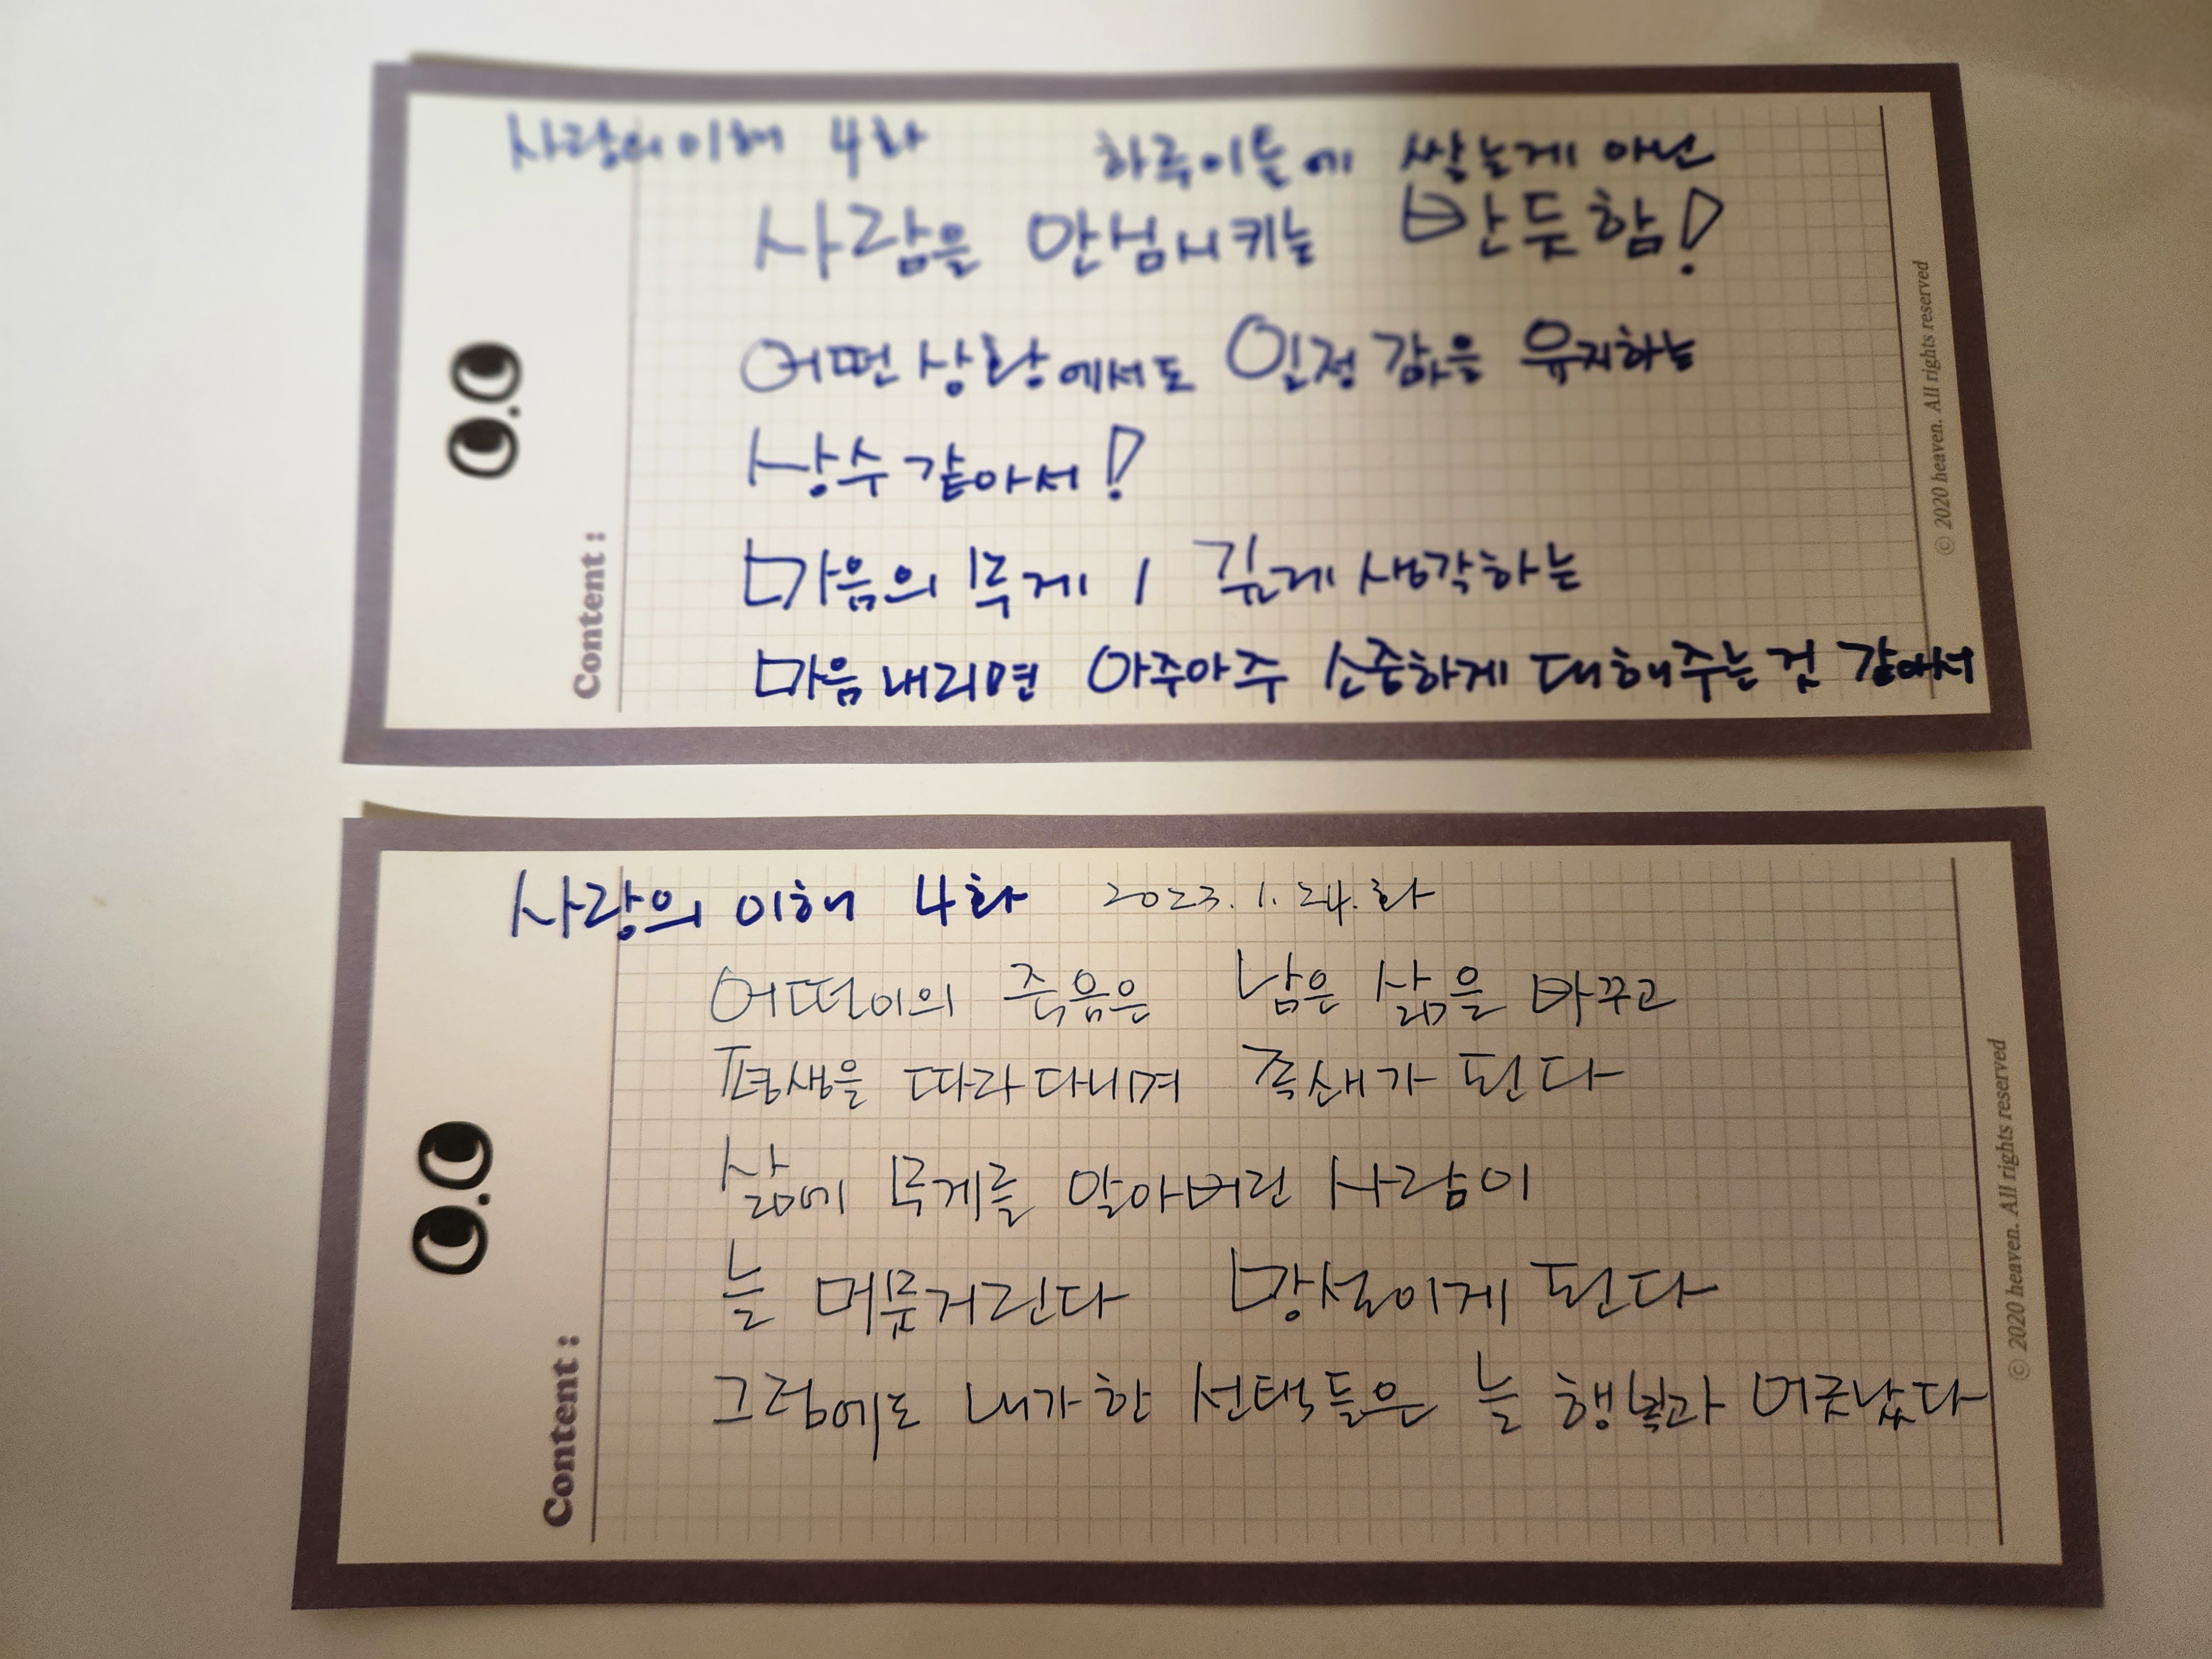 사랑의 이해 4화 하루이틀에 쌓는게 아닌
사람을 안심시키는 반듯함!
어떤 상황에서도 일정 값을 유지하는
상수 같아서!
마음의 무게 / 깊게 생각하는
마음 내리면 아주아주 소중하게 대해주는 것 같아서
Content :
© 2020 heaven. All rights reserved
사랑의 이해 4화 2023. 1. 24. 화
어떤이의 죽음은 남은 삶을 바꾸고
평생을 따라다니며 족쇄가 된다
삶에 무게를 알아버린 사람이
늘 머뭇거린다 망설이게 된다
그럼에도 내가 한 선택들은 늘 행복과 어긋났다
Content :
© 2020 heaven. All rights reserved